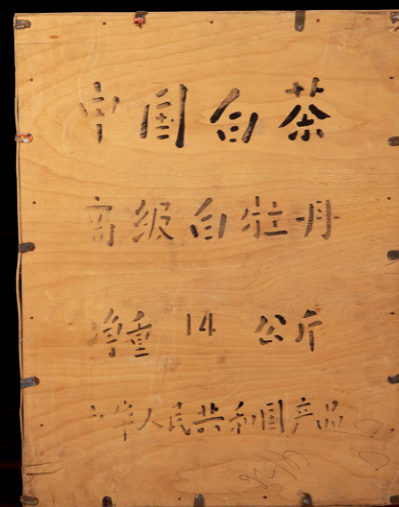 中国白茶
高级白牡丹
净重 14 公斤
中华人民共和国产品